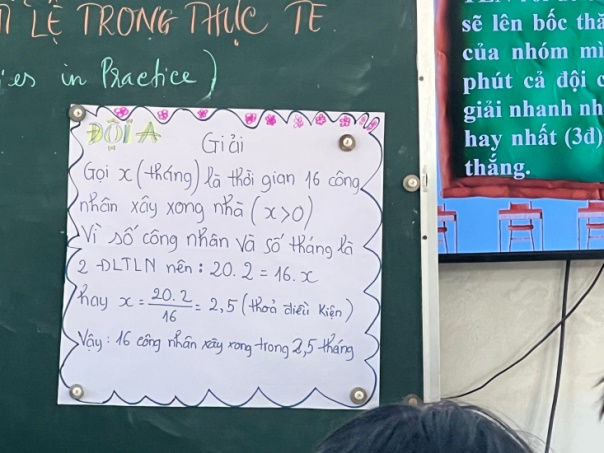 LỆ TRONG THỰC TẾ
in Practice)
ĐỘI A
Giải
Gọi x (tháng) là thời gian 16 công
nhân xây xong nhà (x>0)
Vì số công nhân và số tháng là
2 ĐLTLN nên: 20.2 = 16.x
hay x = 20.2/16 = 2,5 (thoả điều kiện)
Vậy: 16 công nhân xây xong trong 2,5 tháng
sẽ lên bốc thă
của nhóm mì
phút cả đội c
giải nhanh nh
hay nhất (3đ)
thắng.